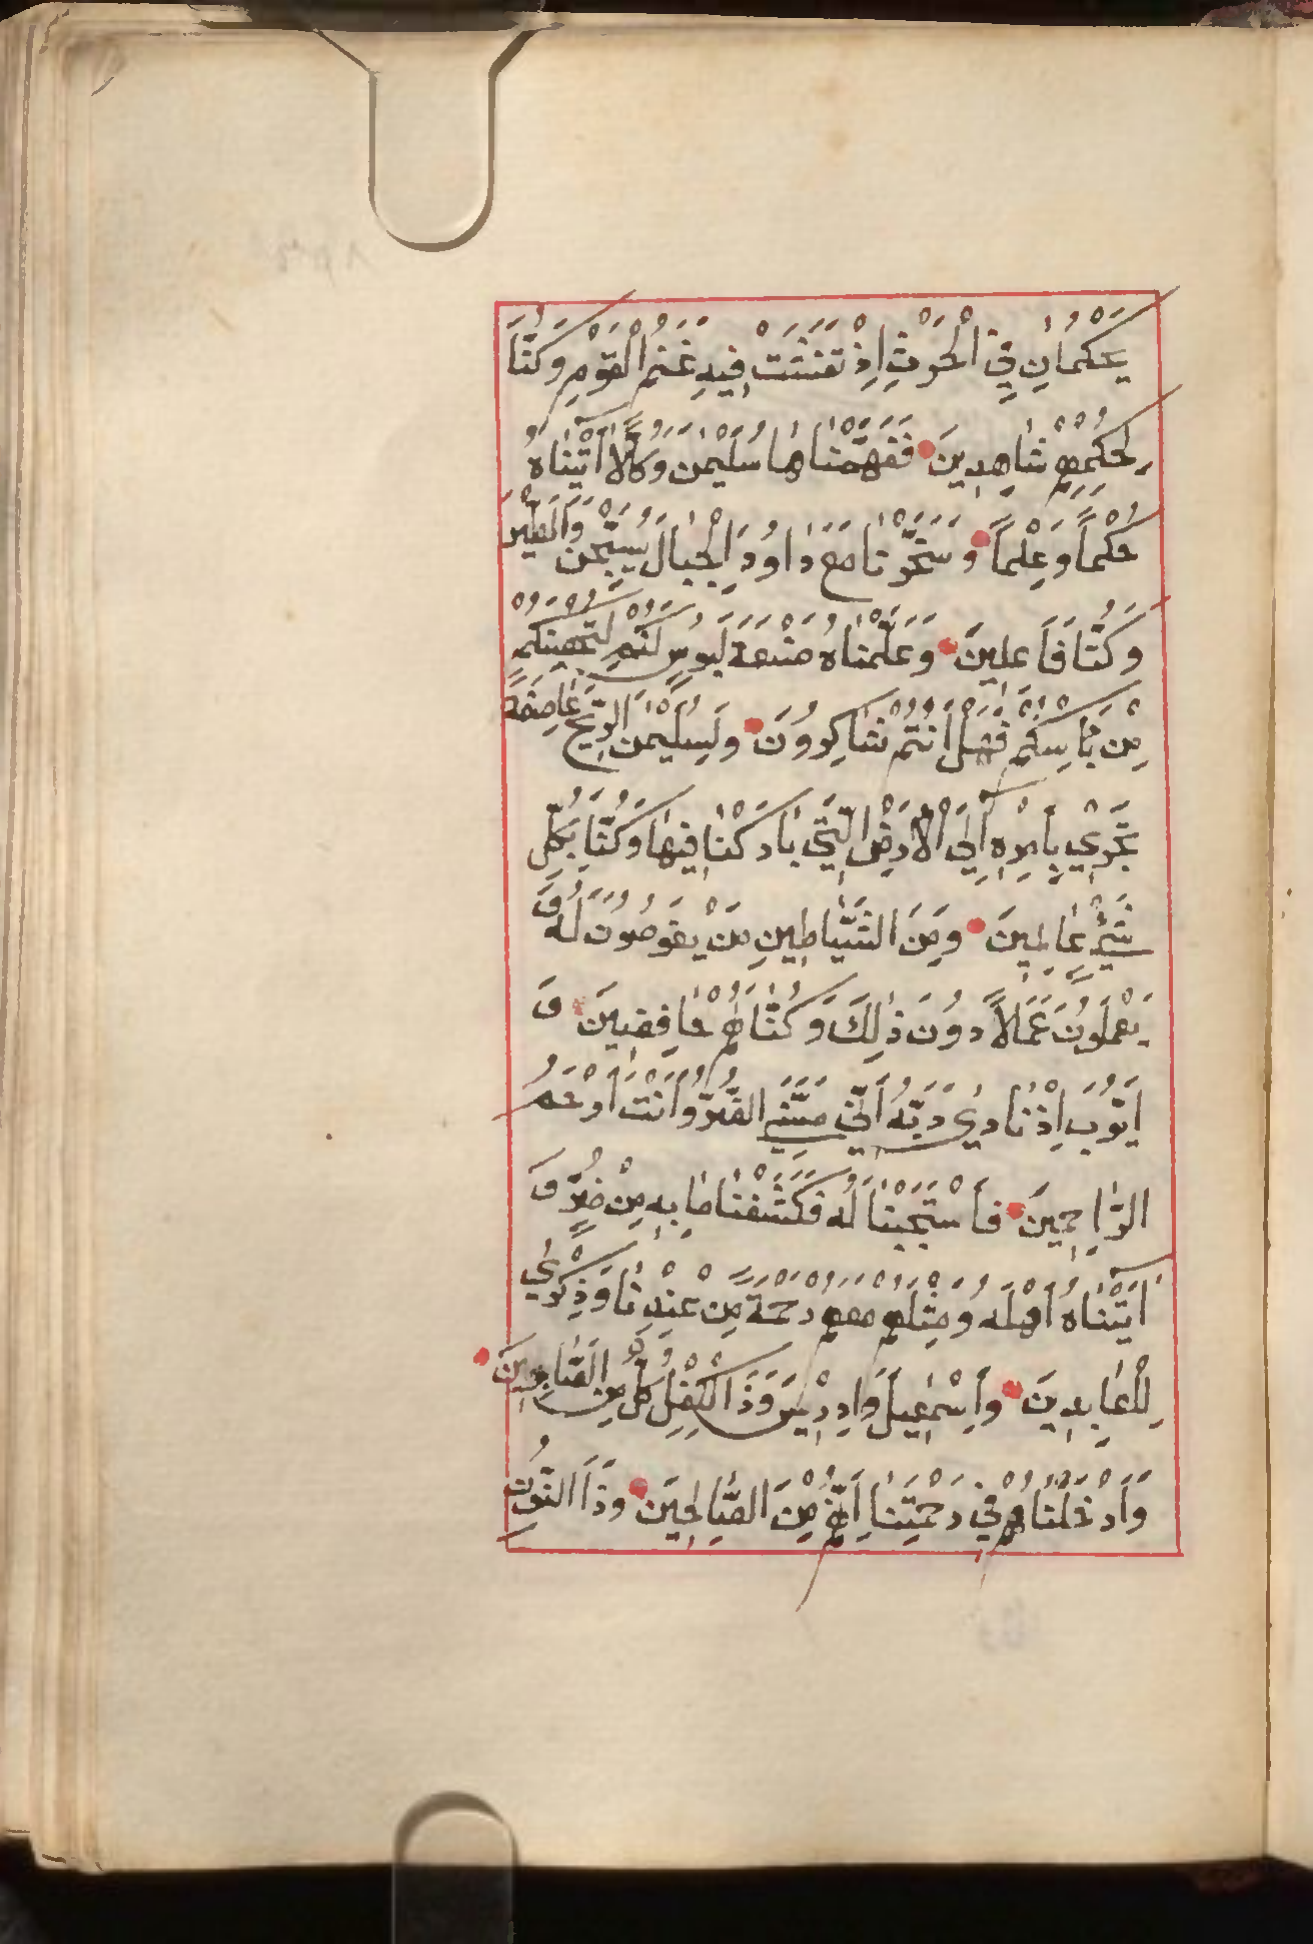 يَحْكُمَانِ فِي الْحَرْثِ اِذْ نَفَشَتْ فِيهِ غَنَمُ الْقَوْمِ وَكُنَّا
لِحُكْمِهِمْ شَاهِدِينَ فَفَهَّمْنَاهَا سُلَيْمٰنَ وَكُلًّا اٰتَيْنَاهُ
حُكْمًا وَعِلْمًا وَسَخَّرْنَا مَعَ دَاوُدَ الْجِبَالَ يُسَبِّحْنَ وَالطَّيْرَ
وَكُنَّا فَاعِلِينَ وَعَلَّمْنَاهُ صَنْعَةَ لَبُوسٍ لَكُمْ لِتُحْصِنَكُمْ
مِنْ بَأْسِكُمْ فَهَلْ اَنْتُمْ شَاكِرُونَ وَلِسُلَيْمٰنَ الرِّيحَ عَاصِفَةً
تَجْرِي بِاَمْرِهِ اِلَى الْاَرْضِ الَّتِي بَارَكْنَا فِيهَا وَكُنَّا بِكُلِّ
شَيْءٍ عَالِمِينَ وَمِنَ الشَّيَاطِينِ مَنْ يَغُوصُونَ لَهُ وَ
يَعْمَلُونَ عَمَلًا دُونَ ذٰلِكَ وَكُنَّا لَهُمْ حَافِظِينَ وَ
اَيُّوبَ اِذْ نَادٰى رَبَّهُ اَنِّي مَسَّنِيَ الضُّرُّ وَاَنْتَ اَرْحَمُ
الرَّاحِمِينَ فَاسْتَجَبْنَا لَهُ فَكَشَفْنَا مَا بِهِ مِنْ ضُرٍّ وَ
اٰتَيْنَاهُ اَهْلَهُ وَمِثْلَهُمْ مَعَهُمْ رَحْمَةً مِنْ عِنْدِنَا وَذِكْرٰى
لِلْعَابِدِينَ وَاِسْمٰعِيلَ وَاِدْرِيسَ وَذَا الْكِفْلِ كُلٌّ مِنَ الصَّابِرِينَ
وَاَدْخَلْنَاهُمْ فِي رَحْمَتِنَا اِنَّهُمْ مِنَ الصَّالِحِينَ وَذَا النُّونِ